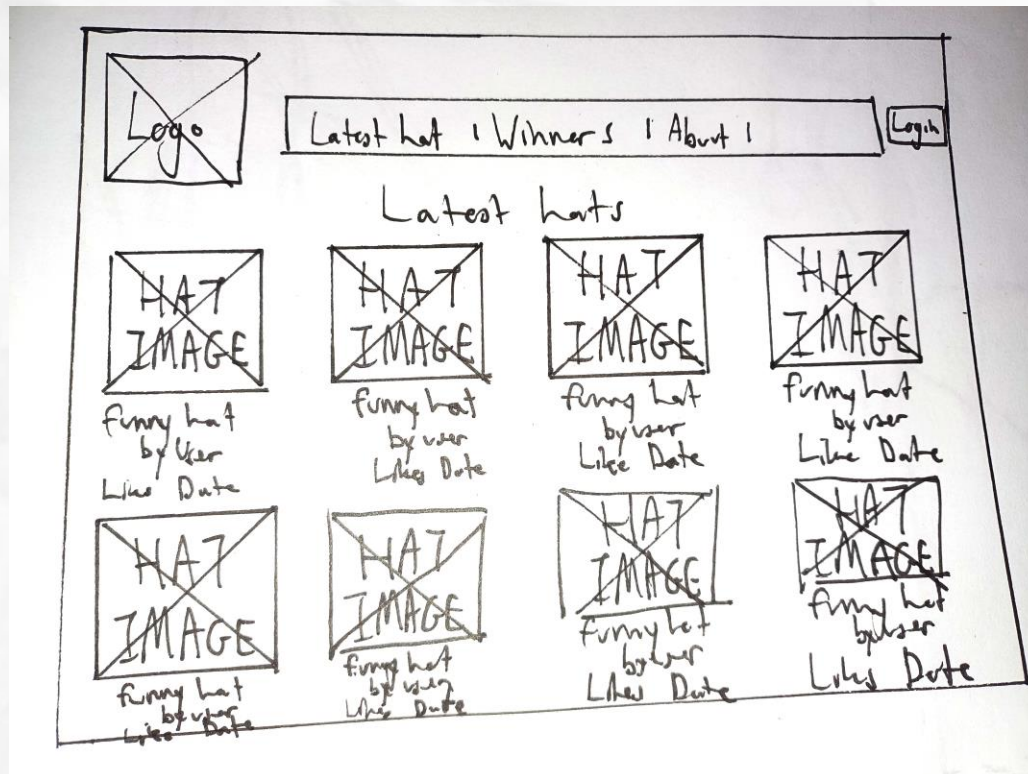 Logo
Latest hat | Winners | About |
Login
Latest hats
HAT
IMAGE
funny hat
by User
Likes Date
HAT
IMAGE
funny hat
by user
Likes Date
HAT
IMAGE
funny hat
by user
Like Date
HAT
IMAGE
funny hat
by user
Like Date
HAT
IMAGE
funny hat
by user
Likes Date
HAT
IMAGE
funny hat
by user
Likes Date
HAT
IMAGE
funny hat
by user
Likes Date
HAT
IMAGE
funny hat
by user
Likes Date